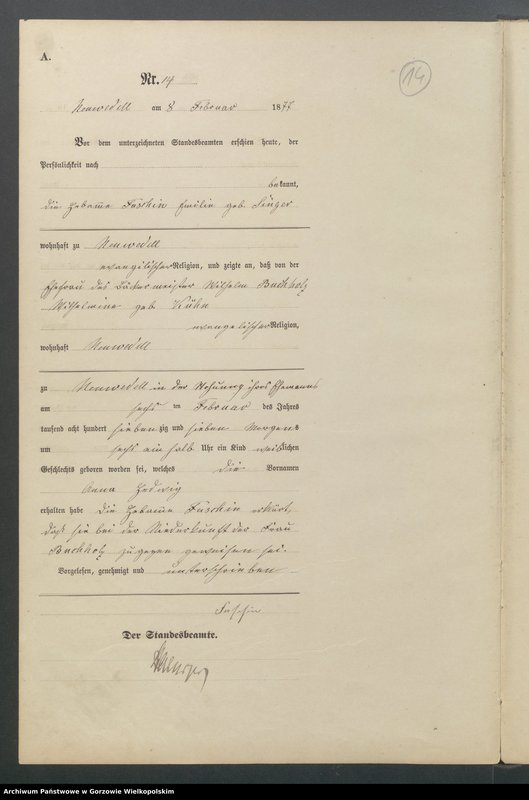 A.
14
Nr. 14
Neuwedell am 8 Februar 1877
Vor dem unterzeichneten Standesbeamten erschien heute, der
Persönlichkeit nach
bekannt,
die Hebamme Füschin Emilie geb. Singer
wohnhaft zu Neuwedell
evangelischer Religion, und zeigte an, daß von der
Ehefrau des Bäckermeister Wilhelm Buchholz
Wilhelmine geb. Kühn
evangelischer Religion,
wohnhaft Neuwedell
zu Neuwedell in der Wohnung ihres Ehemanns
am sechs ten Februar des Jahres
tausend acht hundert siebenzig und sieben Morgens
um sechs ein halb Uhr ein Kind weiblichen
Geschlechts geboren worden sei, welches die Vornamen
Anna Hedwig
erhalten habe die Hebamme Füschin erklärt,
daß sie bei der Niederkunft der Frau
Buchholz zugegen gewesen sei.
Vorgelesen, genehmigt und unterschrieben
Füschin
Der Standesbeamte.
Archiwum Państwowe w Gorzowie Wielkopolskim